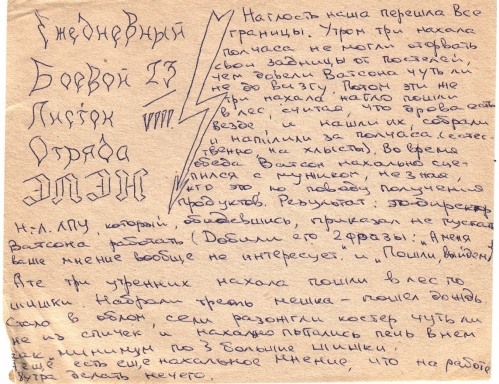 Ежедневный
Боевой 23
Листок VIII
Отряда
ЭПЭН
Наглость наша перешла все
границы. Утром три нахала
полчаса не могли оторвать
свои задницы от постелей,
чем довели Ватсона чуть ли
не до визгу. Потом эти же
три нахала нагло пошли
в лес, считая, что дрова есть
везде, и нашли их, собрали
и напилили за полчаса (естес-
твенно на хлысты). Во время
обеда Ватсон нахально сце-
пился с мужиком, не зная,
кто это, по поводу получения
продуктов. Результат: это директор
Н-Л. ЛПУ, который, обидевшись, приказал не пускать
Ватсона работать (Добили его 2 фразы: "А меня
ваше мнение вообще не интересует" и "Пошли, выйдем")
А те три утренних нахала пошли в лес по
шишки. Набрали треть мешка - пошел дождь
Стало в облом, сели разожгли костер чуть ли
не из спичек и нахально пытались печь в нем
как минимум по 3 большие шишки.
А ещё есть еще нахальное мнение, что на работе
завтра делать нечего.